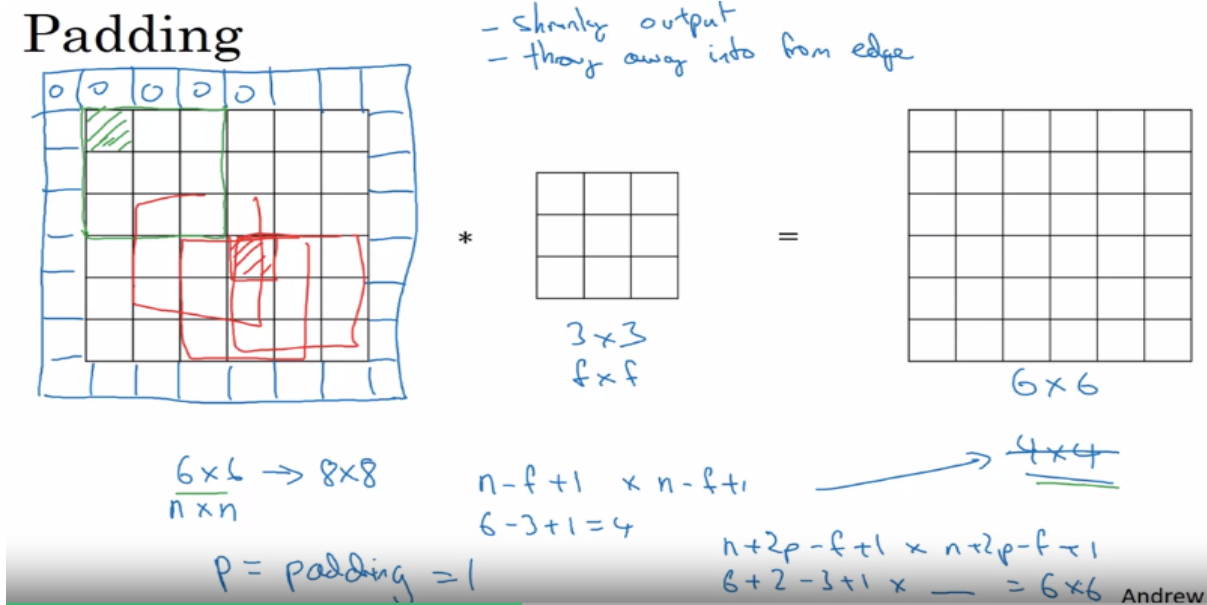 Padding
- shrinky output
- throw away info from edge
0 0 0 0 0
*
=
3 × 3
f × f
6 × 6
6 × 6 → 8 × 8
n × n
n - f + 1 × n - f + 1
→ 4 × 4
6 - 3 + 1 = 4
p = padding = 1
n + 2p - f + 1 × n + 2p - f + 1
6 + 2 - 3 + 1 × __ = 6 × 6
Andrew